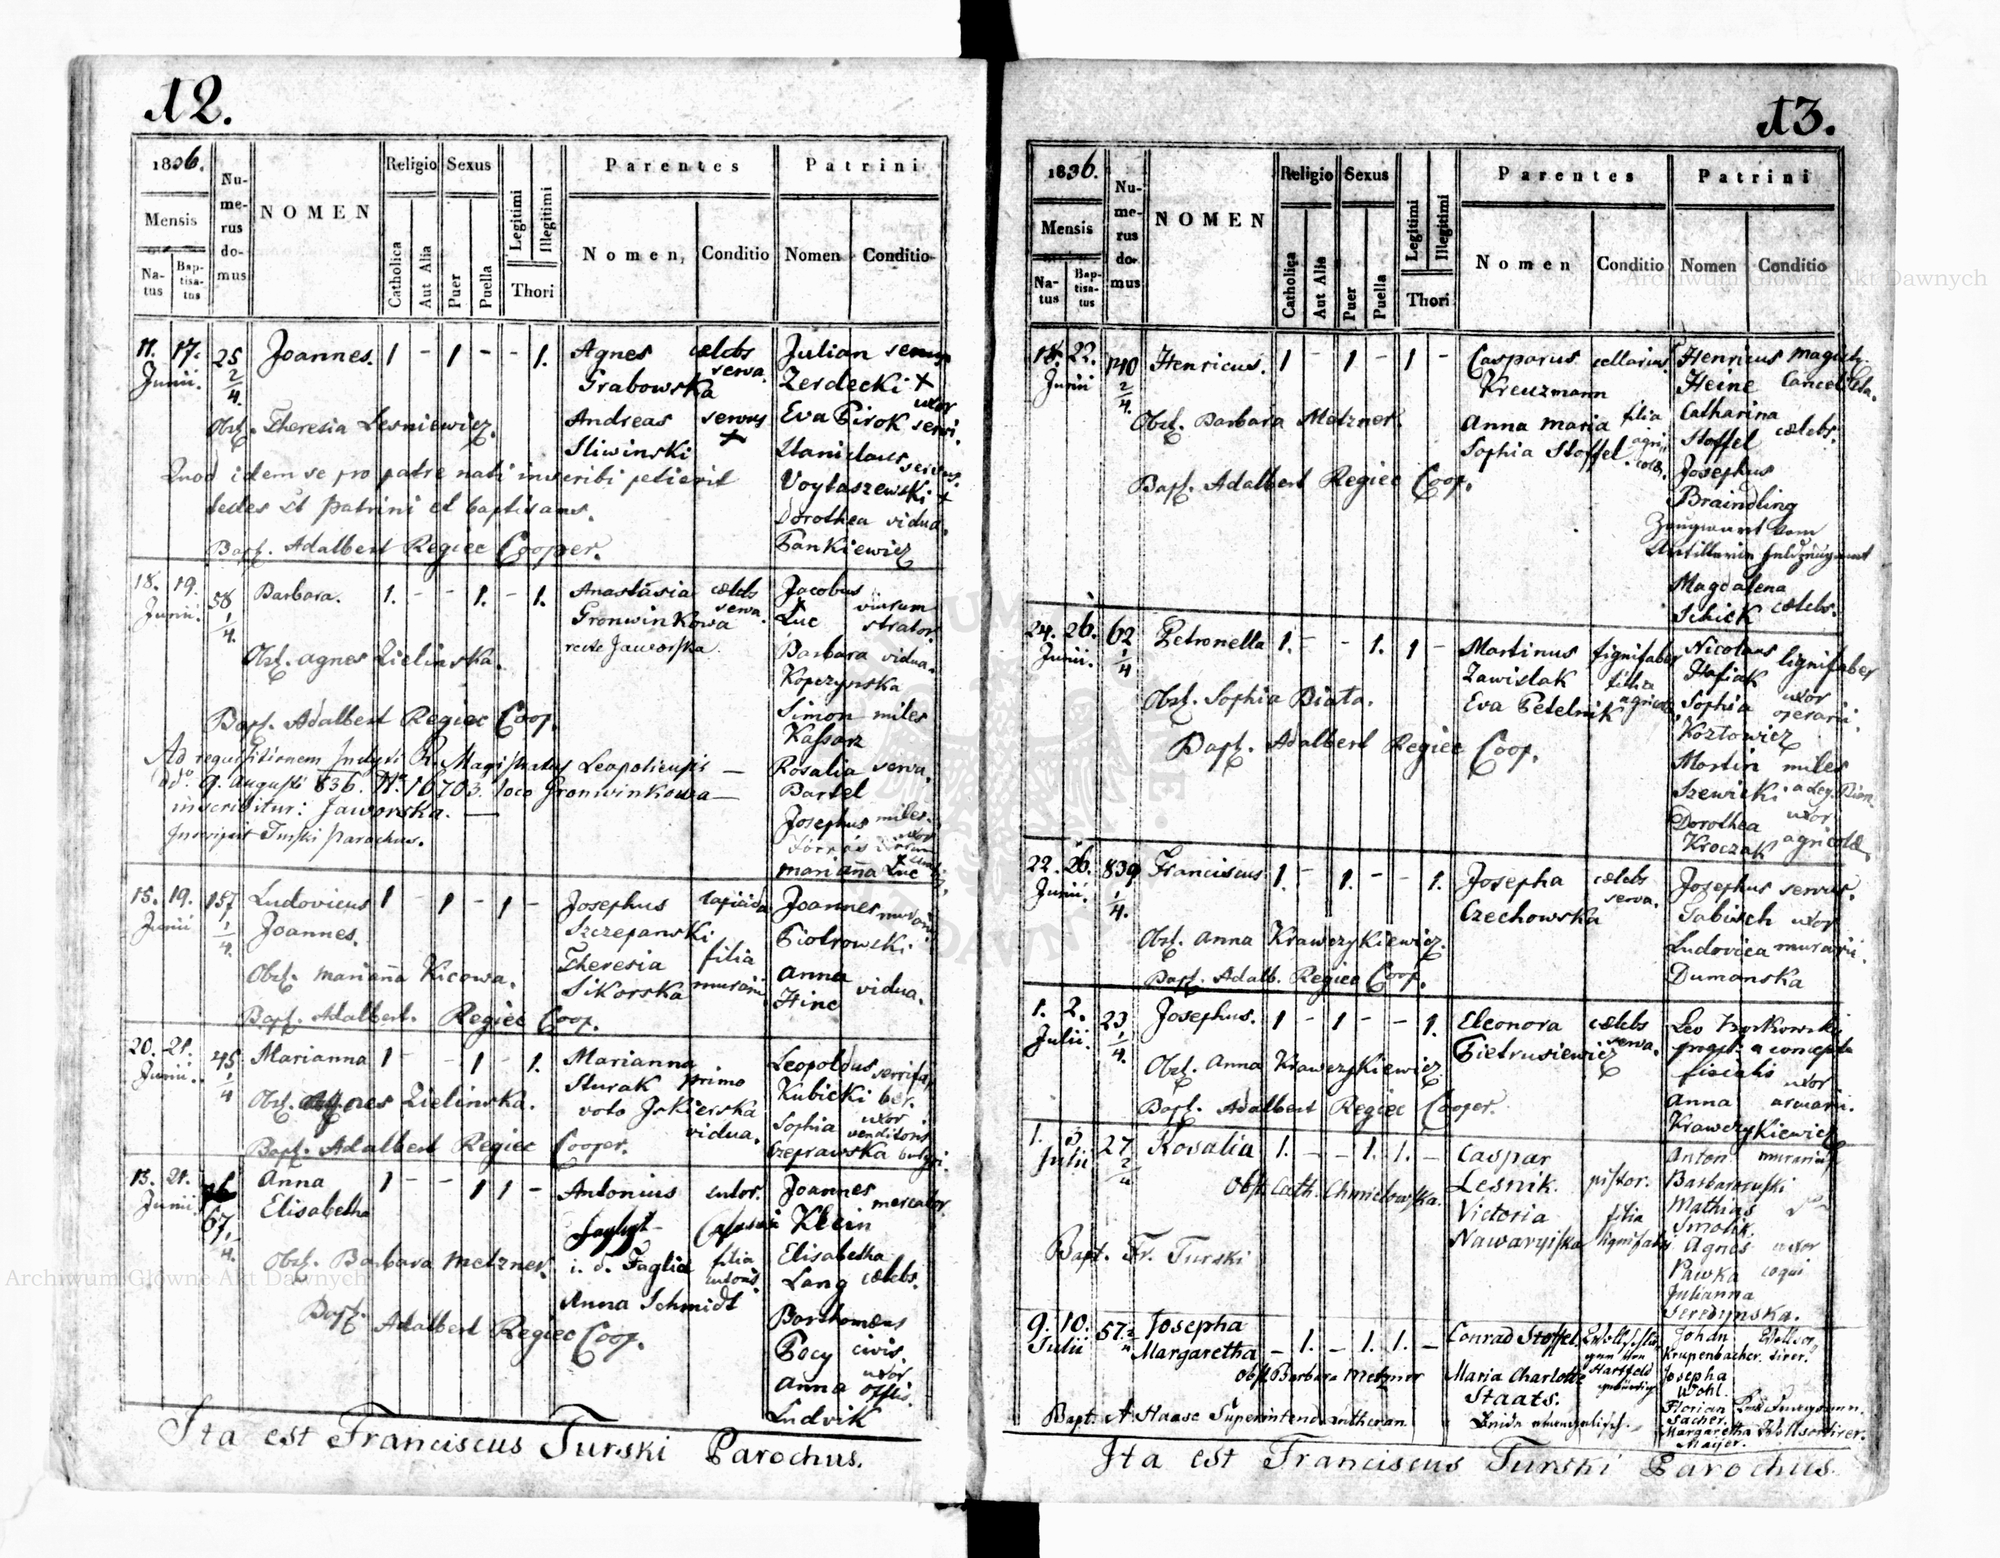 12.
1836.
Mensis
Na-
tus
Bap-
tisa-
tus
Nu-
me-
rus
do-
mus
NOMEN
Religio
Catholica
Aut Alia
Sexus
Puer
Puella
Legitimi
Illegitimi
Thori
Parentes
Nomen,
Conditio
Patrini
Nomen
Conditio
11. 17. 25 Joannes. 1 - 1 - - 1. Agnes cælebs Julian servus
Junii. 2/4. Grabowska serva. Zerdecki +
Obst. Theresia Lesniewicz. Andreas servus Eva Pirok uxor servi.
Sliwinski + Stanislaus servus.
Quod idem se pro patre nati inscribi petierit Woytaszewski +
testes et patrini et baptisans. Dorothea vidua.
Bapt. Adalbert Regiec Cooper. Pankiewicz
18. 19. 58 Barbara. 1. - - 1. - 1. Anastasia cælebs Jacobus viarum
Junii. 1/4. Gronwinkowa serva. Luc strator.
Obst. Agnes Zielinska. recte Jaworska Barbara vidua.
Kopczynska
Bapt. Adalbert Regiec Coop. Simon miles
Kassarz
Ad requisitionem Inclyti R. Magistratus Leopoliensis — Rosalia serva.
ddo 9. Augusti 836. No 16703. loco Gronwinkowa — Bartel
inscribitur: Jaworska. — Josephus miles.
Inscripsit Turski Parochus.
Marianna Luc
15. 19. 157 Ludovicus 1 - 1 - 1 - Josephus lapicida Joannes murarius
Junii 1/4. Joannes. Szczepanski Piotrowski
Obst. Marianna Kicowa. Theresia filia Anna vidua.
Sikorska murarii Hinc
Bapt. Adalbert. Regiec Coop.
20. 21. 45 Marianna 1 - - 1 - 1. Marianna Leopoldus serrifa-
Junii. 1/4 Sturak primo Kubicki ber.
Obst. Agnes Zielinska. voto Iskierska Sophia uxor venditoris
vidua.
Bapt. Adalbert Regiec Cooper. Czeprawska
13. 21. Anna 1 - - 1 1 - Antonius sutor. Joannes mercator.
Junii. 67. 1/4. Elisabetha Klein
Obst. Barbara Metzner. i. d. Faglia filia sutoris Elisabetha
Anna Schmidt Lang cælebs.
Bapt. Adalbert Regiec Coop. Bartholomæus
Pocy civis.
Anna uxor
Ludvik
Ita est Franciscus Turski Parochus.
13.
1836.
Mensis
Na-
tus
Bap-
tisa-
tus
Nu-
me-
rus
do-
mus
NOMEN
Religio
Catholica
Aut Alia
Sexus
Puer
Puella
Legitimi
Illegitimi
Thori
Parentes
Nomen
Conditio
Patrini
Nomen
Conditio
18. 22. 140 Henricus. 1 - 1 - 1 - Casparus cellarius. Henricus magistr.
Junii 2/4. Kreuzmann Heine Cancelista.
Obst. Barbara Metzner. Anna Maria filia Catharina
Sophia Stoffel agricolæ. Stoffel cælebs.
Bapt. Adalbert Regiec Coop. Josephus
Braindling
Zeugwart vom
Artillerie Feldzeugamt
Magdalena
Schick cælebs.
24. 26. 62 Petronella 1. - - 1. 1 - Martinus lignifaber Nicolaus lignifaber
Junii. 1/4 Zawislak filia Hafiak
Obst. Sophia Biata. Eva Petelnik agricolæ. Sophia uxor operarii.
Kozlowicz
Bapt. Adalbert Regiec Coop. Martin miles
Szewicki
Dorothea uxor
Kroczak agricolæ.
22. 26. 839 Franciscus 1. - 1. - - 1. Josepha cælebs Josephus servus.
Junii. 1/4. Czechowska serva. Tabisch uxor
Obst. Anna Krawczykiewicz. Ludovica murarii.
Bapt. Adalb. Regiec Coop. Dumanska
1. 2. 23 Josephus. 1 - 1 - - 1. Eleonora cælebs Leo Borkowski
Julii. 1/4. Pietrusiewicz serva.
Obst. Anna Krawczykiewicz fiscalis
Anna uxor
Bapt. Adalbert Regiec Cooper. Krawczykiewicz
1. 3. 27 Rosalia 1. - - 1. 1. - Caspar Anton murarius
Julii Lesnik. pistor. Barbarowski
Obst. Cath. Chmielowska. Victoria filia Mathias
Nawaryiska lignifabri Smolik.
Bapt. Fr. Turski Agnes uxor
Pawka coqui
Julianna
Seredynska.
9. 10. 57. Josepha
Julii Margaretha - 1. - 1. 1. - Conrad Stoffel. Johan
Krupenbacher.
Obst. Barbara Metzner Maria Charlotte Josepha
Staats. Wohl.
Florian
Sacher.
Bapt. A Haase Superintend. Lutheran. Margaretha
Maijer.
Ita est Franciscus Turski Parochus.
Archiwum Główne Akt Dawnych
Archiwum Główne Akt Dawnych